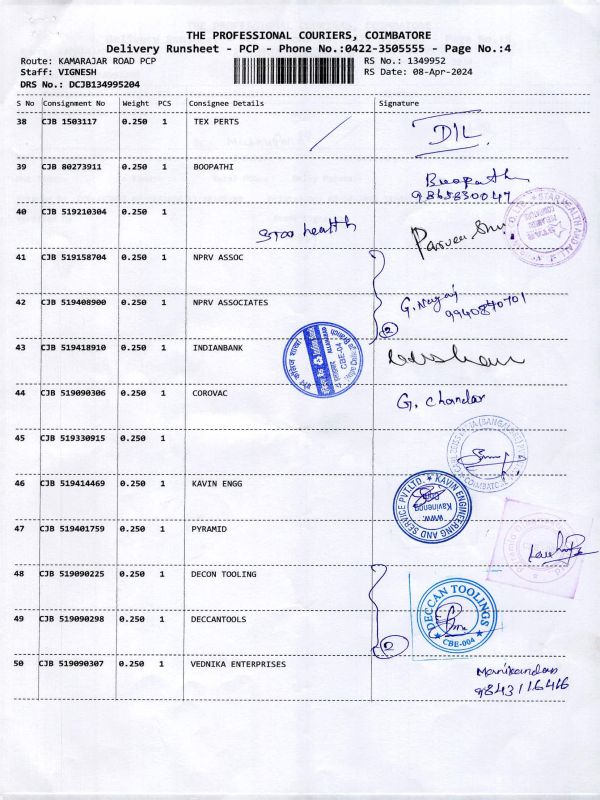 THE PROFESSIONAL COURIERS, COIMBATORE
Delivery Runsheet - PCP - Phone No.:0422-3505555 - Page No.:4
Route: KAMARAJAR ROAD PCP RS No.: 1349952
Staff: VIGNESH RS Date: 08-Apr-2024
DRS No.: DCJB134995204
S No Consignment No Weight PCS Consignee Details Signature
38 CJB 1503117 0.250 1 TEX PERTS D/L
39 CJB 80273911 0.250 1 BOOPATHI Boopathi
40 CJB 519210304 0.250 1 Star health
41 CJB 519158704 0.250 1 NPRV ASSOC
42 CJB 519408900 0.250 1 NPRV ASSOCIATES G. Nagaj
9940870701
2
43 CJB 519418910 0.250 1 INDIANBANK
CBE-04
44 CJB 519090306 0.250 1 COROVAC G. Chandar
45 CJB 519330915 0.250 1
46 CJB 519414469 0.250 1 KAVIN ENGG
KAVIN ENGINEERING AND SERVICE PVT.LTD.
47 CJB 519401759 0.250 1 PYRAMID
48 CJB 519090225 0.250 1 DECON TOOLING
49 CJB 519090298 0.250 1 DECCANTOOLS
DECCAN TOOLINGS
CBE-004
2
50 CJB 519090307 0.250 1 VEDNIKA ENTERPRISES Manikandan
9843116416